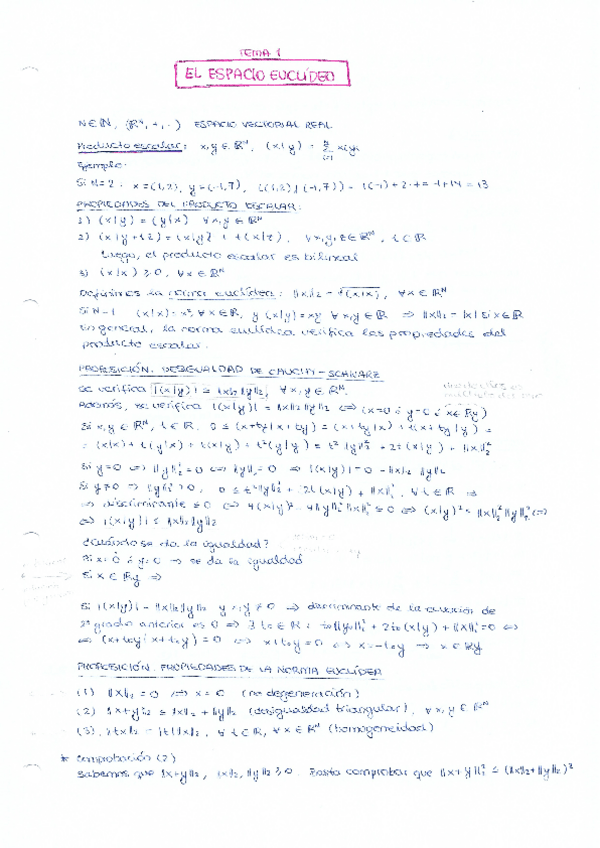 TEMA 1
EL ESPACIO EUCLÍDEO
N∈ℕ, (ℝᴺ, +, ·) ESPACIO VECTORIAL REAL
Producto escalar: x,y ∈ ℝᴺ, (x|y) = Σ xᵢyᵢ
Ejemplo:
Si N=2 · x=(1,2), y=(-1,7), ((1,2)|(-1,7)) = 1(-1)+2·7=-1+14=13
PROPIEDADES DEL PRODUCTO ESCALAR:
1) (x|y) = (y|x) ∀x,y∈ℝᴺ
2) ∀x,y,z∈ℝᴺ, t∈ℝ
Luego, el producto escalar es bilineal
3) (x|x) ≥ 0, ∀x∈ℝᴺ
Definimos la norma euclídea: ‖x‖₂ = √(x|x), ∀x∈ℝᴺ
Si N=1 (x|x)=x², ∀x∈ℝ, y (x|y)=xy ∀x,y∈ℝ ⇒ ‖x‖₂ = |x| si x∈ℝ
En general, la norma euclídea verifica las propiedades del
producto escalar.
PROPOSICIÓN. DESIGUALDAD DE CAUCHY-SCHWARZ
Se verifica |(x|y)| ≤ ‖x‖₂‖y‖₂, ∀x,y∈ℝᴺ.
Además, se verifica |(x|y)| = ‖x‖₂‖y‖₂ ⇔ (x=0 ó y=0 ó x∈ℝy)
Si x,y∈ℝᴺ, t∈ℝ. 0 ≤ (x+ty|x+ty) = (x+ty|x) + t(x+ty|y) =
= (x|x) + t(y|x) + t(x|y) + t²(y|y) = t²‖y‖₂² + 2t(x|y) + ‖x‖₂²
Si y=0 ⇔ ‖y‖₂²=0 ⇔ ‖y‖₂=0 ⇒ |(x|y)| = 0 = ‖x‖₂‖y‖₂
Si y≠0 ⇒ ‖y‖₂²>0, 0 ≤ t²‖y‖₂² + 2t(x|y) + ‖x‖₂², ∀t∈ℝ ⇒
⇒ discriminante ≤ 0 ⇔ 4(x|y)² - 4‖y‖₂²‖x‖₂² ≤ 0 ⇔ (x|y)² ≤ ‖x‖₂²‖y‖₂² ⇔
⇔ |(x|y)| ≤ ‖x‖₂‖y‖₂
¿Cuándo se da la igualdad?
Si x=0 ó y=0 ⇒ se da la igualdad
Si x∈ℝy ⇒
Si |(x|y)| = ‖x‖₂‖y‖₂ y y≠0 ⇒ discriminante de la ecuación de
2º grado anterior es 0 ⇒ ∃ t₀∈ℝ : t₀²‖y‖₂² + 2t₀(x|y) + ‖x‖₂² = 0 ⇔
⇔ (x+t₀y|x+t₀y) = 0 ⇔ x+t₀y = 0 ⇔ x=-t₀y ⇒ x∈ℝy
PROPOSICIÓN. PROPIEDADES DE LA NORMA EUCLÍDEA
(1) ‖x‖₂ = 0 ⇔ x=0 (no degeneración)
(2) ‖x+y‖₂ ≤ ‖x‖₂ + ‖y‖₂ (desigualdad triangular), ∀x,y∈ℝᴺ
(3) ‖tx‖₂ = |t|‖x‖₂, ∀t∈ℝ, ∀x∈ℝᴺ (homogeneidad)
* Comprobación (2)
Sabemos que ‖x+y‖₂, ‖x‖₂, ‖y‖₂ ≥ 0. Basta comprobar que ‖x+y‖₂² ≤ (‖x‖₂+‖y‖₂)²